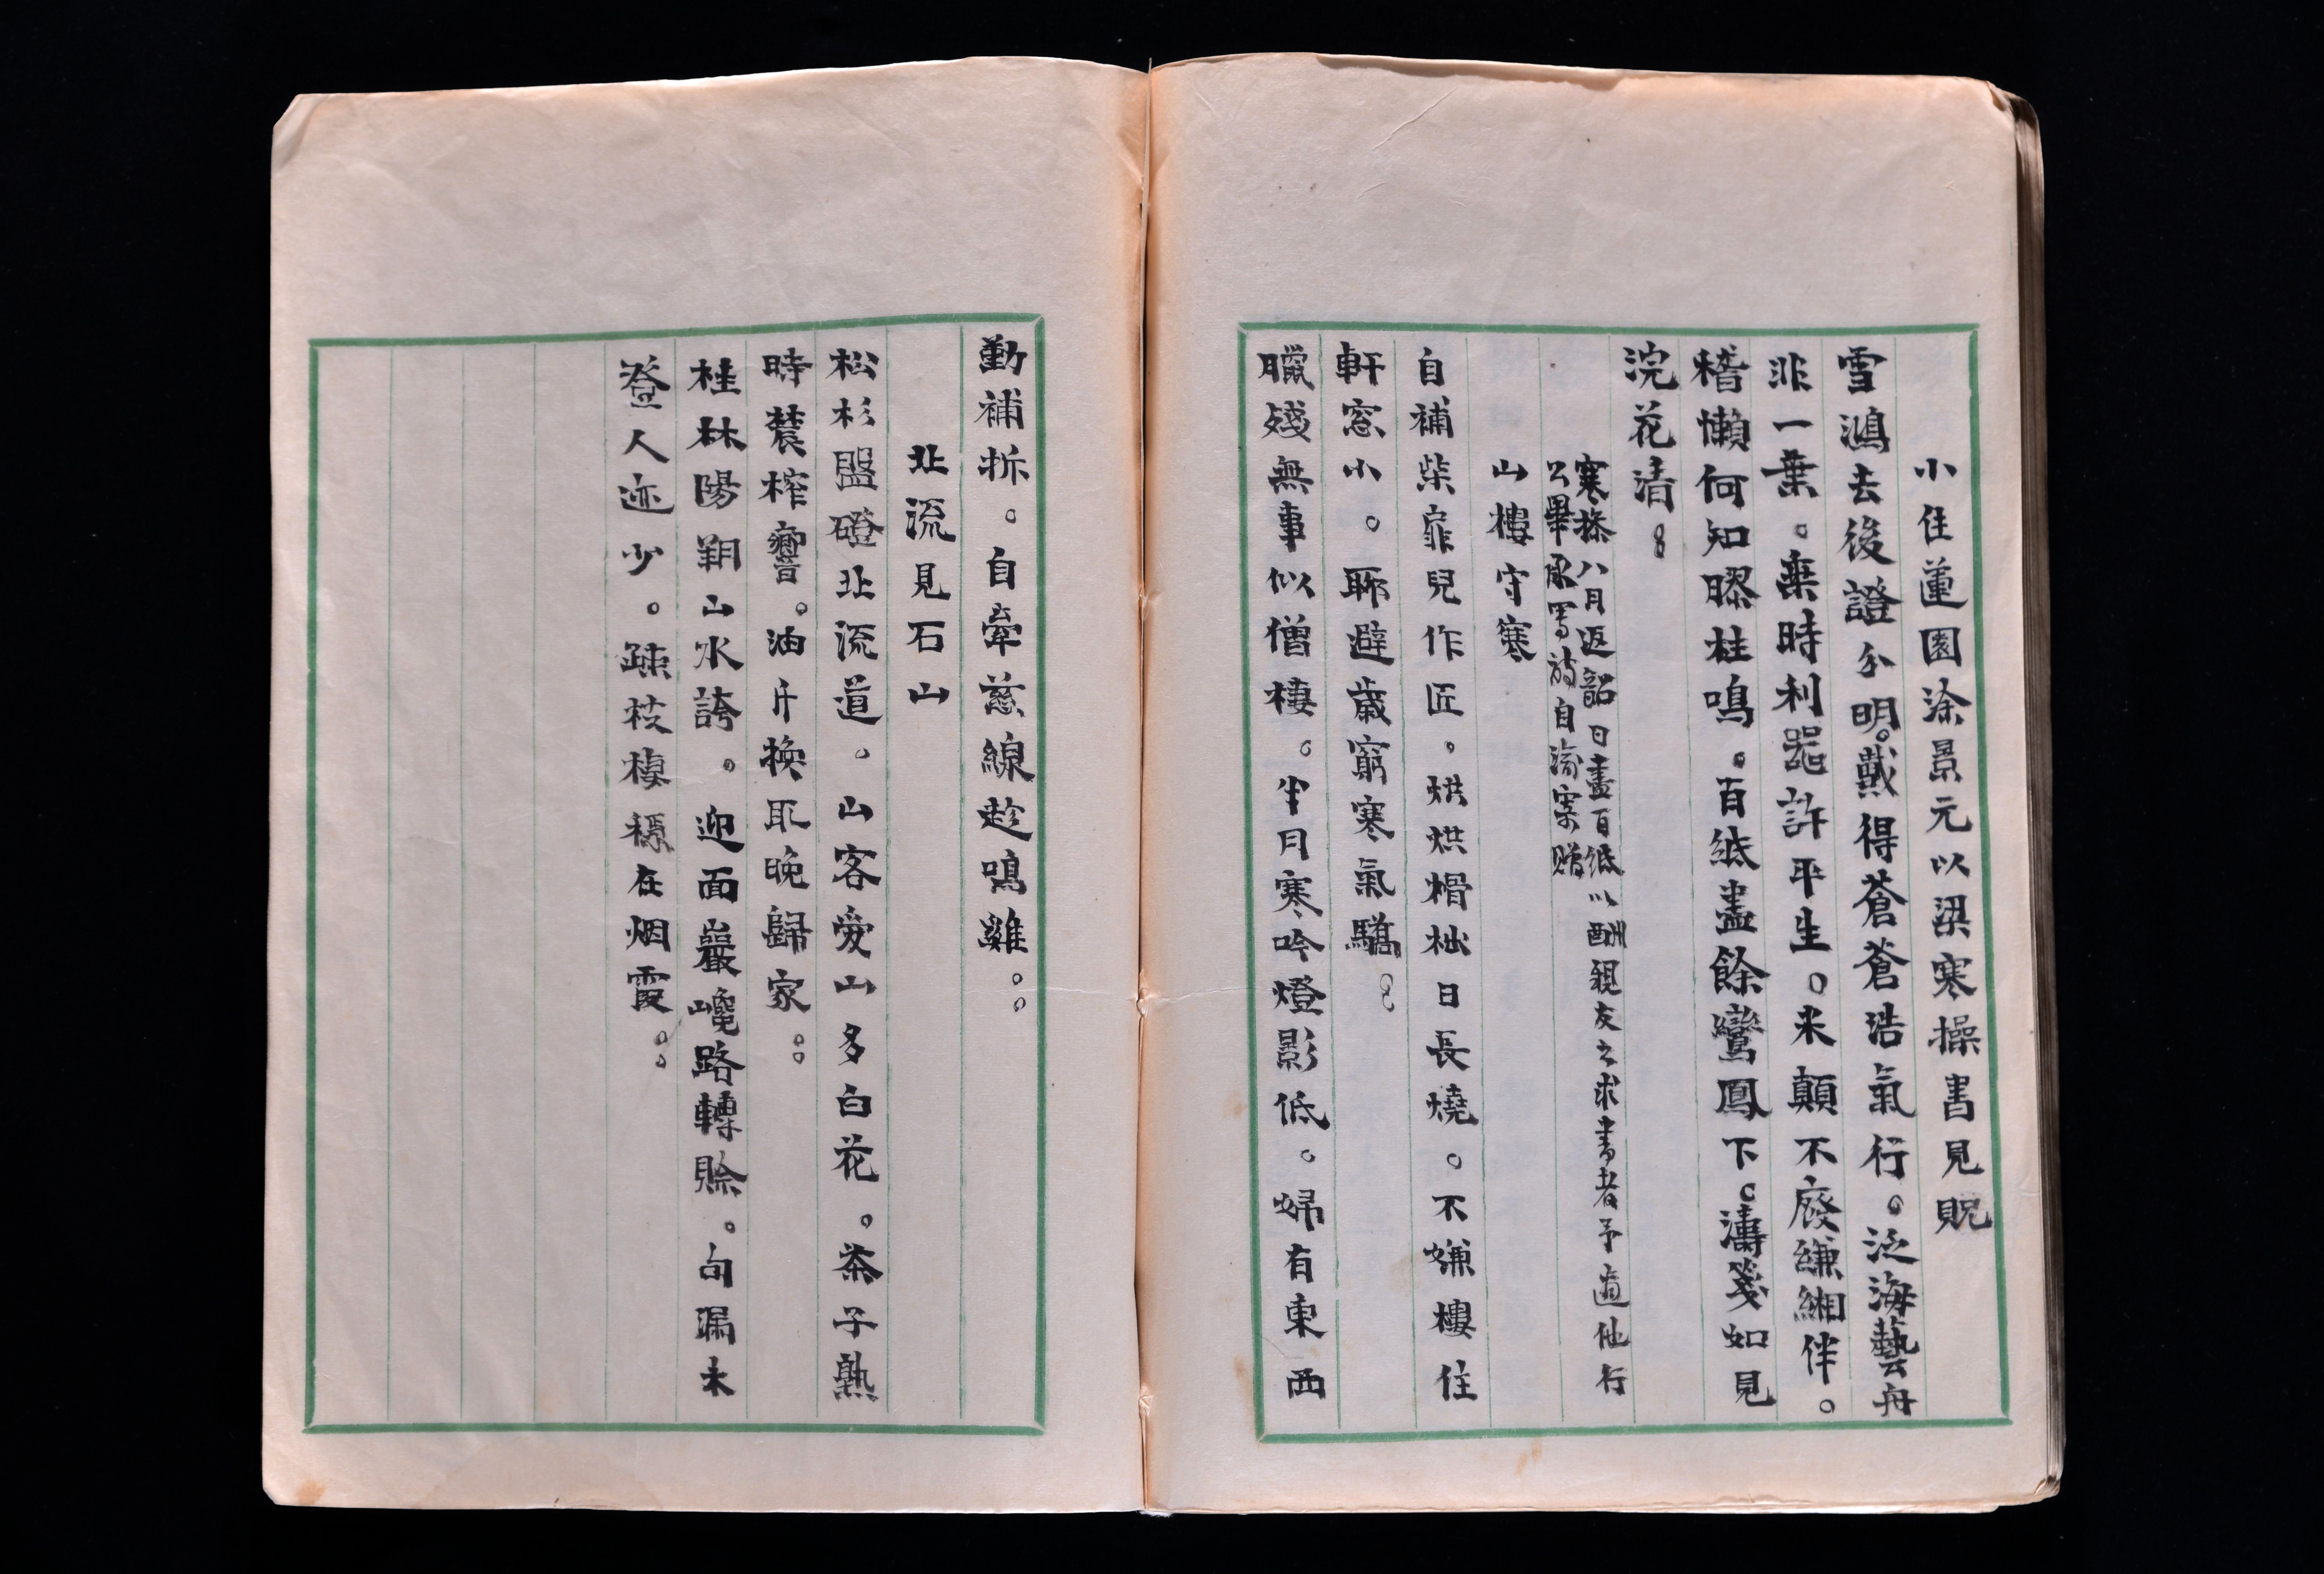 小住蓮園涂景元以梁寒操書見貺
雪鴻去後證分明。戴得蒼蒼浩氣行。泛海藝舟
非一葉。乘時利器許平生。米顛不廢縑緗伴。
嵇懶何知曝桂鳴。百紙盡餘鸞鳳下。濤箋如見
浣花清。。
寒操八月返韶日盡百紙以酬親友之求書者予適他行
公畢取寫詩自渝寄贈
山樓守寒
自補柴扉兒作匠。烘烘榾柮日長燒。不嫌樓住
軒窓小。聊避歲窮寒氣驕。。
臘殘無事似僧棲。半月寒吟燈影低。婦有東西
勤補拆。自牽慈線趁鳴雞。。
北流見石山
松杉盤磴北流道。山客愛山多白花。茶子熟
時聽榨響。油斤換取晚歸家。。
桂林陽朔山水誇。迎面巖巉路轉賒。勾漏未
登人迹少。疎枝棲穩在烟霞。。